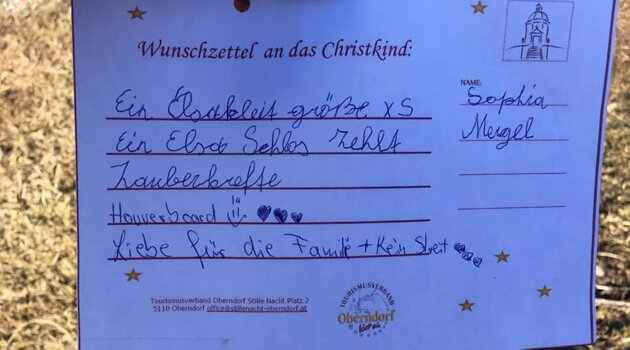 Wunschzettel an das Christkind:
Ein Elsakleit größe XS
Ein Elsa Schlos Zehlt
Zauberkrefte
Houverboard
Liebe für die Famile + Kein Streit
NAME:
Sophia
Mergel
Tourismusverband Oberndorf Stille Nacht Platz 2
5110 Oberndorf office@stillenacht-oberndorf.at
TOURISMUSVERBAND
Oberndorf